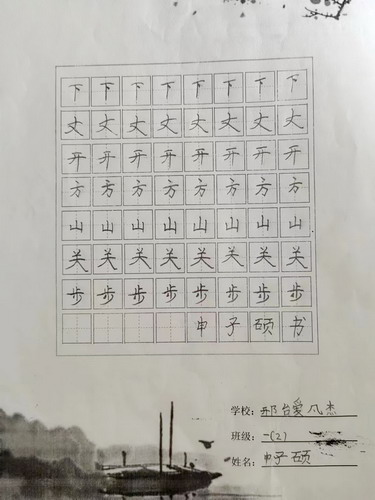 下下下下下下下下
丈丈丈丈丈丈丈丈
开开开开开开开开
方方方方方方方方
山山山山山山山山
关关关关关关关关
步步步步步步步步
申子硕书
学校：邢台爱凡杰
班级：一(2)
姓名：申子硕